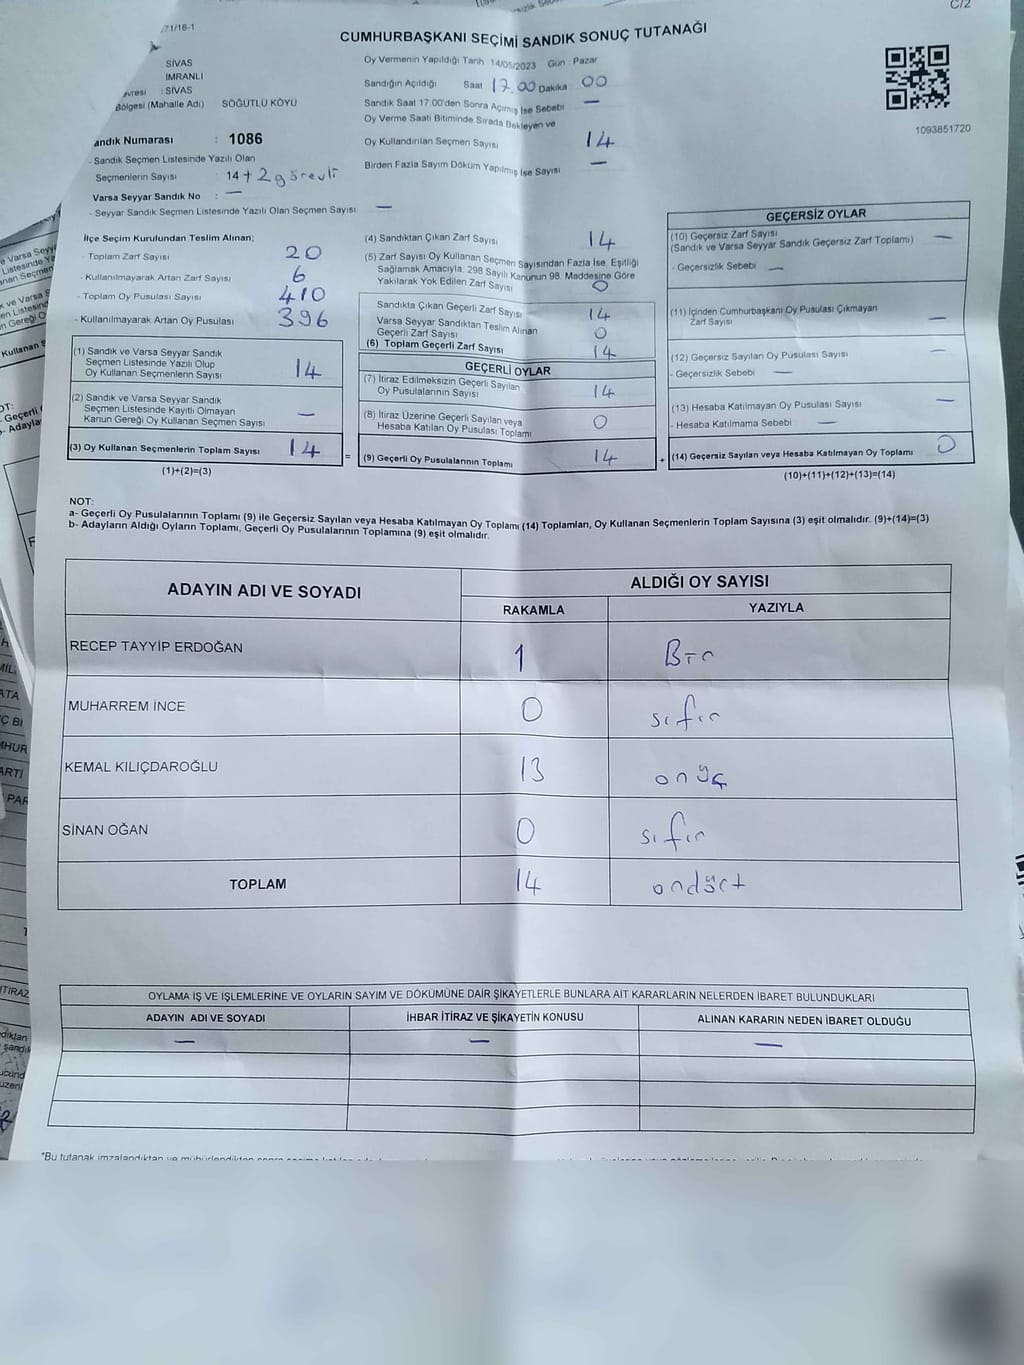 71/18-1
C/2
CUMHURBAŞKANI SEÇİMİ SANDIK SONUÇ TUTANAĞI
SİVAS
İMRANLI
: SİVAS
Bölgesi (Mahalle Adı) SÖĞÜTLÜ KÖYÜ
Oy Vermenin Yapıldığı Tarih 14/05/2023 Gün Pazar
Sandığın Açıldığı Saat 17.00 Dakika 00
Sandık Saat 17:00'den Sonra Açımış İse Sebebi —
Oy Verme Saati Bitiminde Sırada Bekleyen ve
Oy Kullandırılan Seçmen Sayısı 14
Birden Fazla Sayım Döküm Yapılmış İse Sayısı —
1093851720
andık Numarası : 1086
- Sandık Seçmen Listesinde Yazılı Olan
Seçmenlerin Sayısı : 14 + 2 görevli
Varsa Seyyar Sandık No : —
- Seyyar Sandık Seçmen Listesinde Yazılı Olan Seçmen Sayısı —
İlçe Seçim Kurulundan Teslim Alınan;
- Toplam Zarf Sayısı 20
- Kullanılmayarak Artan Zarf Sayısı 6
- Toplam Oy Pusulası Sayısı 410
- Kullanılmayarak Artan Oy Pusulası 396
(1) Sandık ve Varsa Seyyar Sandık
Seçmen Listesinde Yazılı Olup
Oy Kullanan Seçmenlerin Sayısı 14
(2) Sandık ve Varsa Seyyar Sandık
Seçmen Listesinde Kayıtlı Olmayan
Kanun Gereği Oy Kullanan Seçmen Sayısı —
(3) Oy Kullanan Seçmenlerin Toplam Sayısı 14
(1)+(2)=(3)
=
(4) Sandıktan Çıkan Zarf Sayısı 14
(5) Zarf Sayısı Oy Kullanan Seçmen Sayısından Fazla İse, Eşitliği
Sağlamak Amacıyla, 298 Sayılı Kanunun 98. Maddesine Göre
Yakılarak Yok Edilen Zarf Sayısı 0
Sandıkta Çıkan Geçerli Zarf Sayısı 14
Varsa Seyyar Sandıktan Teslim Alınan
Geçerli Zarf Sayısı 0
(6) Toplam Geçerli Zarf Sayısı 14
GEÇERLİ OYLAR
(7) İtiraz Edilmeksizin Geçerli Sayılan
Oy Pusulalarının Sayısı 14
(8) İtiraz Üzerine Geçerli Sayılan veya
Hesaba Katılan Oy Pusulası Toplamı 0
(9) Geçerli Oy Pusulalarının Toplamı 14
+
GEÇERSİZ OYLAR
(10) Geçersiz Zarf Sayısı —
(Sandık ve Varsa Seyyar Sandık Geçersiz Zarf Toplamı)
- Geçersizlik Sebebi —
(11) İçinden Cumhurbaşkanı Oy Pusulası Çıkmayan
Zarf Sayısı —
(12) Geçersiz Sayılan Oy Pusulası Sayısı —
- Geçersizlik Sebebi —
(13) Hesaba Katılmayan Oy Pusulası Sayısı —
- Hesaba Katılmama Sebebi —
(14) Geçersiz Sayılan veya Hesaba Katılmayan Oy Toplamı 0
(10)+(11)+(12)+(13)=(14)
NOT:
a- Geçerli Oy Pusulalarının Toplamı (9) ile Geçersiz Sayılan veya Hesaba Katılmayan Oy Toplamı (14) Toplamları, Oy Kullanan Seçmenlerin Toplam Sayısına (3) eşit olmalıdır. (9)+(14)=(3)
b- Adayların Aldığı Oyların Toplamı, Geçerli Oy Pusulalarının Toplamına (9) eşit olmalıdır.
ADAYIN ADI VE SOYADI
ALDIĞI OY SAYISI
RAKAMLA YAZIYLA
RECEP TAYYİP ERDOĞAN 1 Bir
MUHARREM İNCE 0 sıfır
KEMAL KILIÇDAROĞLU 13 onüç
SİNAN OĞAN 0 sıfır
TOPLAM 14 ondört
OYLAMA İŞ VE İŞLEMLERİNE VE OYLARIN SAYIM VE DÖKÜMÜNE DAİR ŞİKAYETLERLE BUNLARA AİT KARARLARIN NELERDEN İBARET BULUNDUKLARI
ADAYIN ADI VE SOYADI İHBAR İTİRAZ VE ŞİKAYETİN KONUSU ALINAN KARARIN NEDEN İBARET OLDUĞU
— — —
*Bu tutanak imzalandıktan ve mühürlendikten sonra